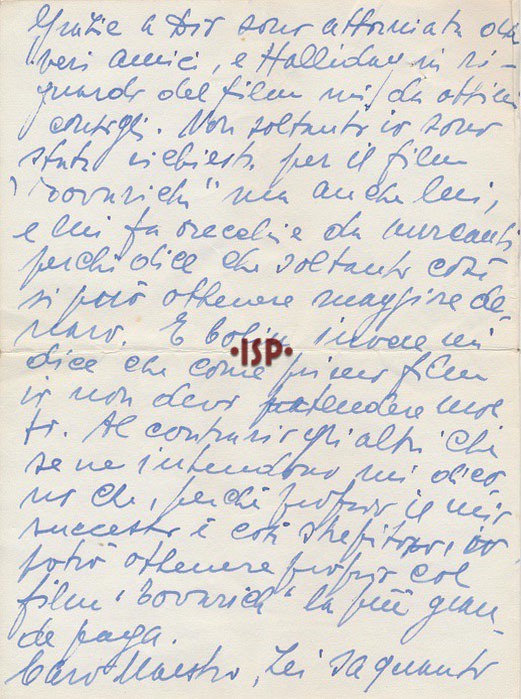 Grazie a Dio sono attorniata da
veri amici, e Halliday in ri-
guardo del film mi da ottimi
consigli. Non soltanto io sono
stata richiesta per il film
"Fornarich" ma anche lui,
e lui fa orecchie da mercanti
perché dice che soltanto così
si può ottenere maggiore de-
naro. E invece mi
•ISP•
dice che come primo film
io non devo pretendere mol
to. Al contrario gli altri che
se ne intendono mi dico
no che, perché proprio il mio
successo è così strepitoso, io
potrò ottenere proprio col
film la più gran-
de paga.
Caro Maestro, Lei sa quanto